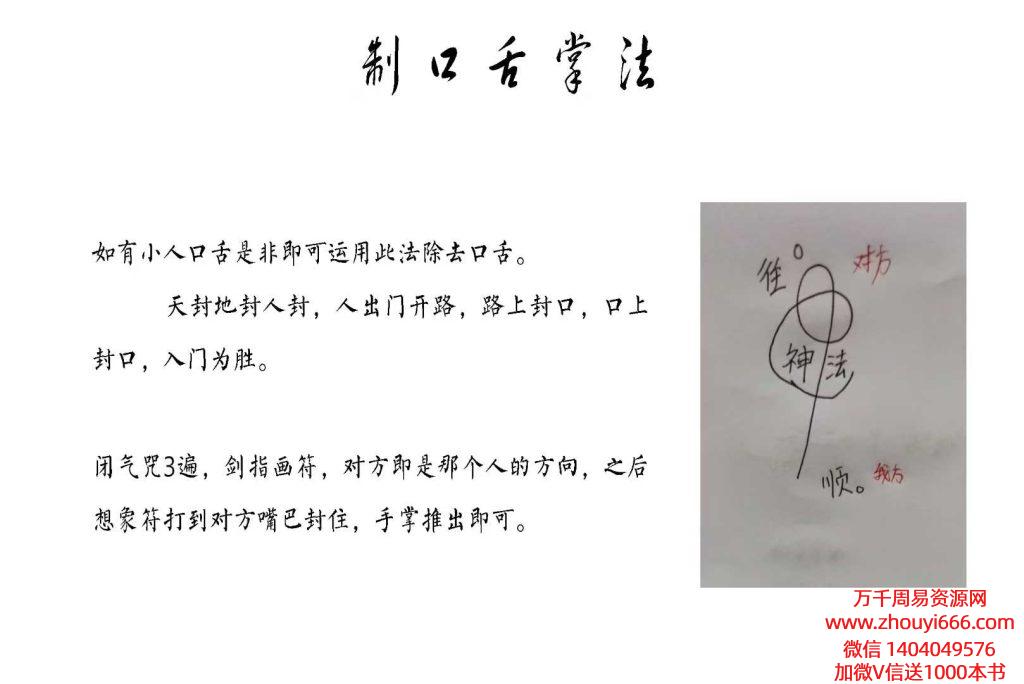 制口舌掌法
如有小人口舌是非即可运用此法除去口舌。
天封地封人封，人出门开路，路上封口，口上
封口，入门为胜。
闭气咒3遍，剑指画符，对方即是那个人的方向，之后
想象符打到对方嘴巴封住，手掌推出即可。
对方
神法
顺。
我方
万千周易资源网
www.zhouyi666.com
微信 1404049576
加微V信送1000本书